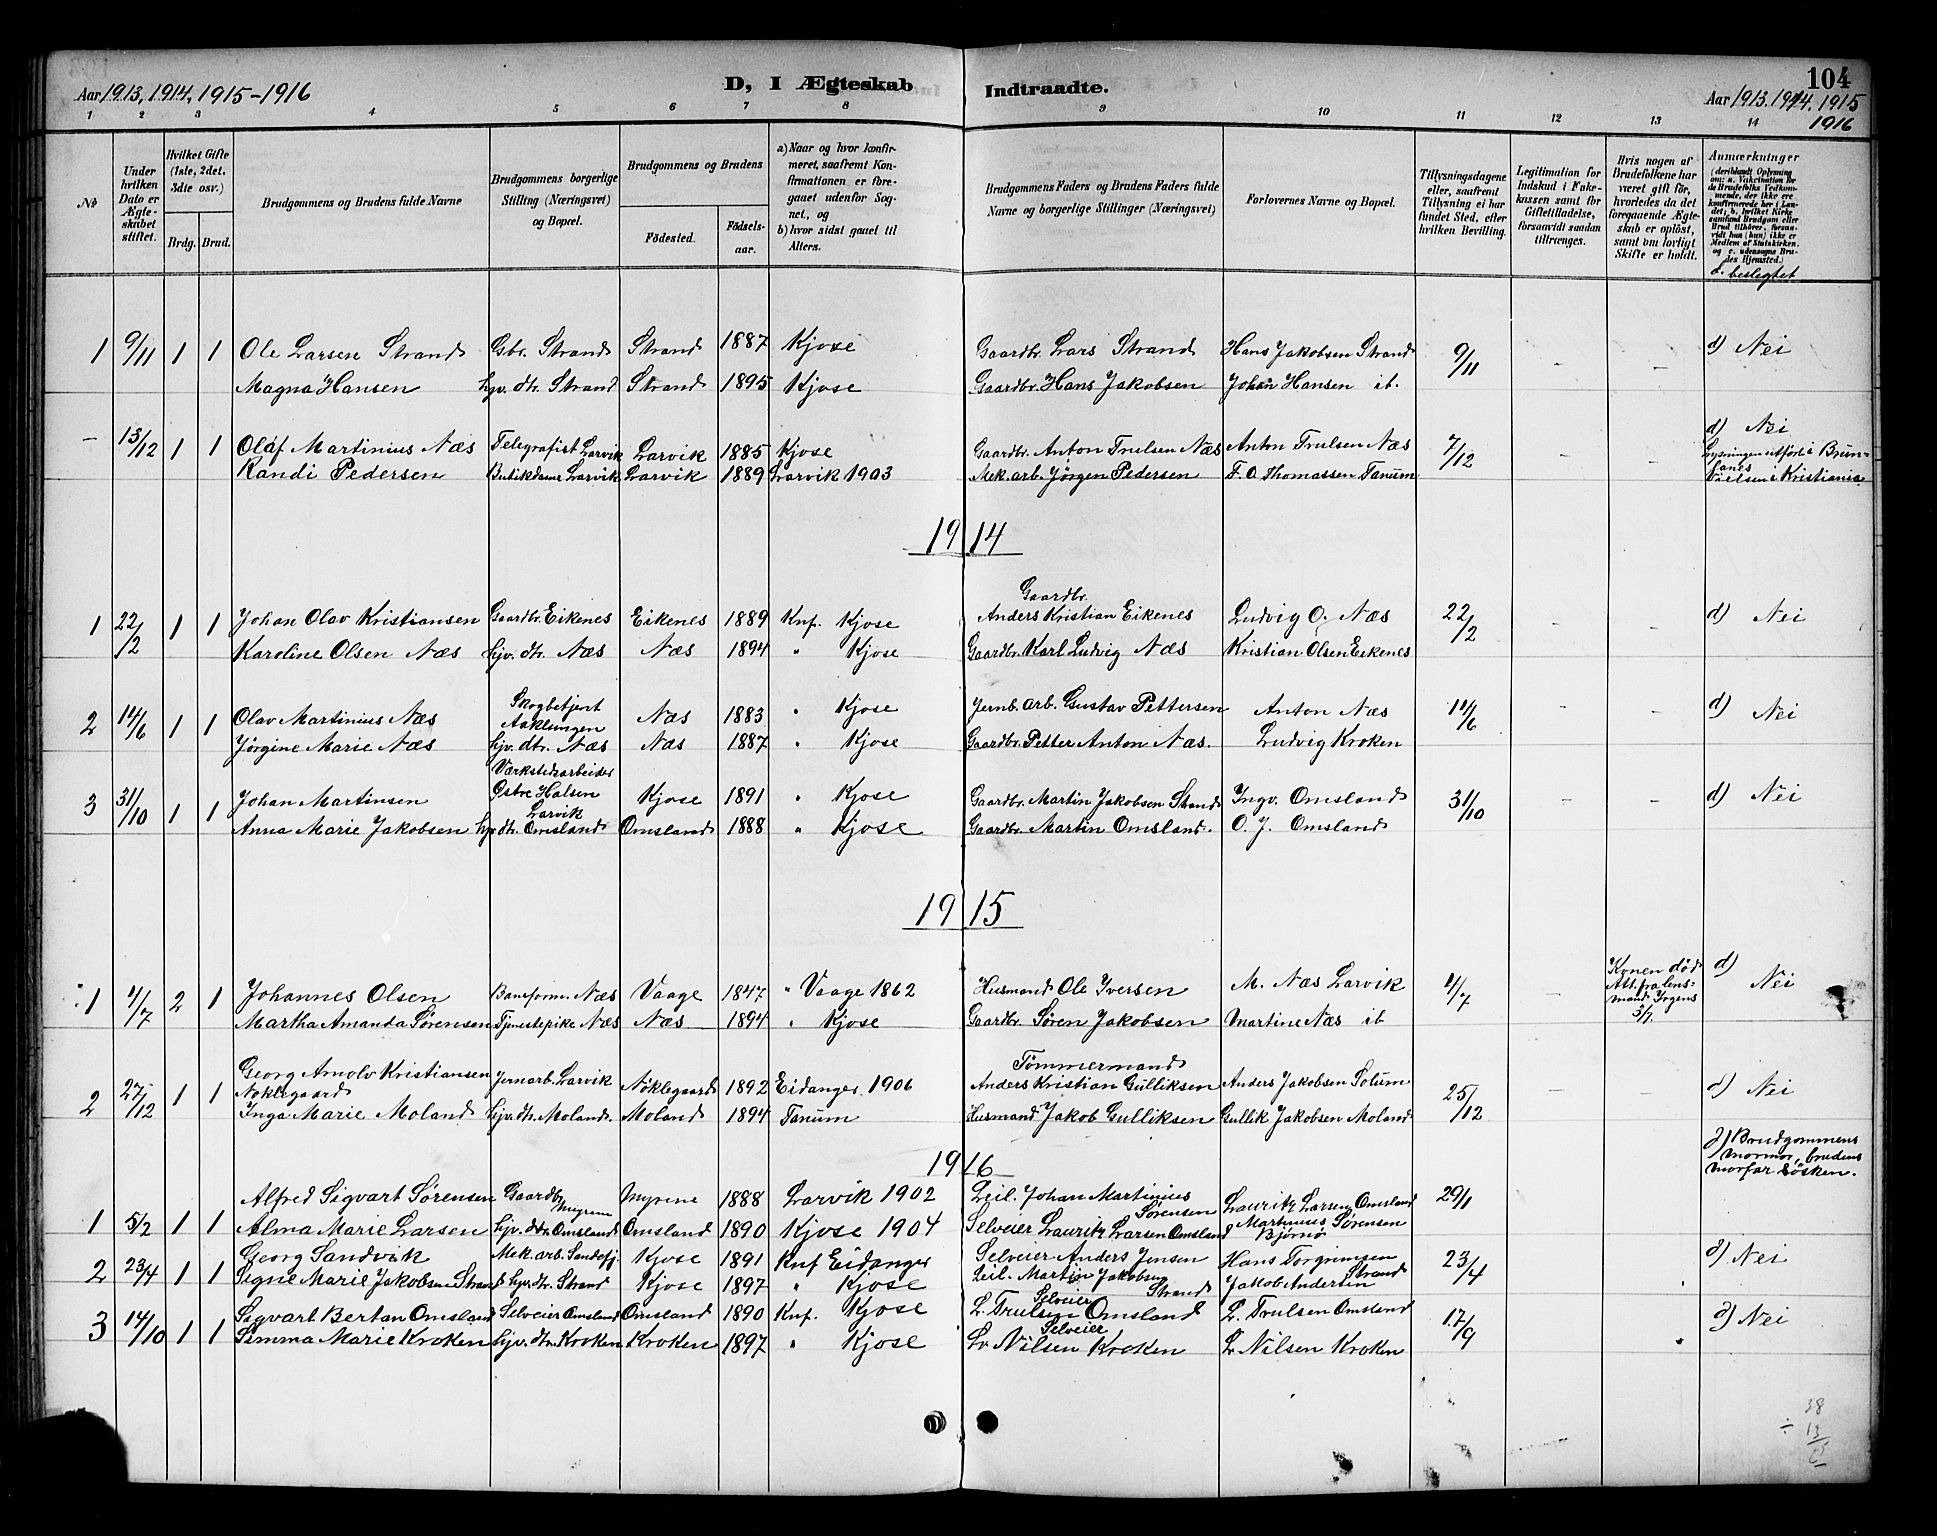 Aar 1913, 1914, 1915-1916
D, I Ægteskab
Indtraadte.
104
Aar 1913. 1914. 1915
1916
1 2 3 4 5 6 7 8 9 10 11 12 13 14
№
Under hvilken Dato er Ægteskabet stiftet.
Hvilket Gifte (1ste, 2det, 3die osv.)
Brdg. Brud.
Brudgommens og Brudens fulde Navne
Brudgommens borgerlige Stilling (Næringsvei) og Bopæl.
Brudgommens og Brudens
Fødested.
Fødselsaar.
a) Naar og hvor konfirmeret, saafremt Konfirmationen er foregaaet udenfor Sognet, og
b) hvor sidst gaaet til Alters.
Brudgommens Faders og Brudens Faders fulde Navne og borgerlige Stillinger (Næringsvei)
Forlovernes Navne og Bopæl.
Tillysningsdagene eller, saafremt Tillysning ei har fundet Sted, efter hvilken Bevilling.
Legitimation for Indskud i Enkekassen samt for Giftetilladelse, forsaavidt saadan tiltrænges.
Hvis nogen af Brudefolkene har været gift før, hvorledes da det foregaaende Ægteskab er opløst, samt om lovligt Skifte er holdt.
Anmærkninger (deriblandt Oplysning om: a. Vakcination for de Brudefolks Vedkommende, der ikke ere konfirmerede her i Landet; b. hvilket Kirkesamfund Brudgom eller Brud tilhører, forsaavidt han (hun) ikke er Medlem af Statskirken, og c. udensogns Brudes Hjemsted.)
d. beslegtet
1 9/11 1 1 Ole Larsen Strand Gbr. Strand Strand 1887 Kjose Gaardbr. Lars Strand Hans Jakobsen Strand 9/11 - - d) Nei
Magna Hansen hjv. dtr. Strand Strand 1895 Kjose Gaardbr. Hans Jakobsen Johan Hansen ib.
- 13/12 1 1 Olaf Martinius Næs Telegrafist Larvik Larvik 1885 Kjose Gaardbr. Anton Trulsen Næs Anton Trulsen Næs 7/12 - - d) Nei
Randi Pedersen Butikdame Larvik Larvik 1889 Larvik 1903 Mek. arb. Jørgen Pedersen F. O Thomassen Tanum Lysningen utført i Brunlanes
Nielsen i Kristiania
1914
1 22/2 1 1 Johan Olav Kristiansen Gaardbr. Eikenes Eikenes 1889 Knf. Kjose Gaardbr. Anders Kristian Eikenes Ludvig O. Næs 22/2 - - d) Nei
Karoline Olsen Næs hjv. dtr. Næs Næs 1894 " Kjose Gaardbr. Karl Ludvig Næs Kristian Olsen Eikenes
2 14/6 1 1 Olav Martinius Næs Skogbetjent Aaklungen Næs 1883 " Kjose Jernb. arb. Gustav Pettersen Anton Næs 14/6 - - d) Nei
Jørgine Marie Næs hjv. dtr. Næs Næs 1887 " Kjose Gaardbr. Petter Anton Næs. Ludvig Kroken
3 31/10 1 1 Johan Martinsen Værkstedsarbeider Østre Halsen Larvik Kjose 1891 " Kjose Gaardbr. Martin Jakobsen Strand Ingv. Omsland 31/10 - - d) Nei
Anna Marie Jakobsen hjv. dtr. Omsland Omsland 1888 " Kjose Gaardbr. Martin Omsland. O. J. Omsland
1915
1 4/7 2 1 Johannes Olsen Baneform. Næs Vaage 1847 " Vaage 1862 Husmand Ole Iversen M. Næs Larvik 4/7 - Konen død Att. fra lensmand Irgens 3/7. d) Nei
Martha Amanda Sørensen Tjenestepike Næs Næs 1894 " Kjose Gaardbr. Søren Jakobsen Martine Næs ib
2 27/12 1 1 Georg Arnolv Kristiansen Nøklegaard Jernarb. Larvik Nøklegaard 1892 Eidanger 1906 Tømmermand Anders Kristian Gulliksen Anders Jakobsen Solum 25/12 - - d) Nei
Inga Marie Moland hjv. dtr. Moland. Moland 1894 Tanum Husmand Jakob Gulliksen Gullik Jakobsen Moland
1916
1 5/2 1 1 Alfred Sigvart Sørensen Gaardbr. Myrene Myrene 1888 Larvik 1902 Leil. Johan Martinius Sørensen Lauritz Larsen Omsland 29/1 d) Brudgommens mormor, brudens morfar søsken.
Alma Marie Larsen hjv. dtr. Omsland Omsland 1890 Kjose 1904 Selveier Lauritz Larsen Omsland Martinius Sørensen Bjørnø
2 23/4 1 1 Georg Sandvik Mek. arb. Sandefj. Kjose 1891 Knf Eidanger Selveier Anders Jensen Hans Torgrimsen 23/4 d) Nei
Signe Marie Jakobsen Strand hjv. dtr. Strand Kjose 1897 " Kjose Leil. Martin Jakobsen Strand Jakob Andersen Strand
3 14/10 1 1 Sigvart Bertan Omsland Selveier Omsland Omsland 1890 Knf. Kjose Selveier L. Trulsen Omsland L. Trulsen Omsland 17/9 d) Nei
Simma Marie Kroken hjv. dtr. Kroken Kroken 1897 " Kjose Selveier L. Nilsen Kroken L. Nilsen Kroken
38
÷ 13